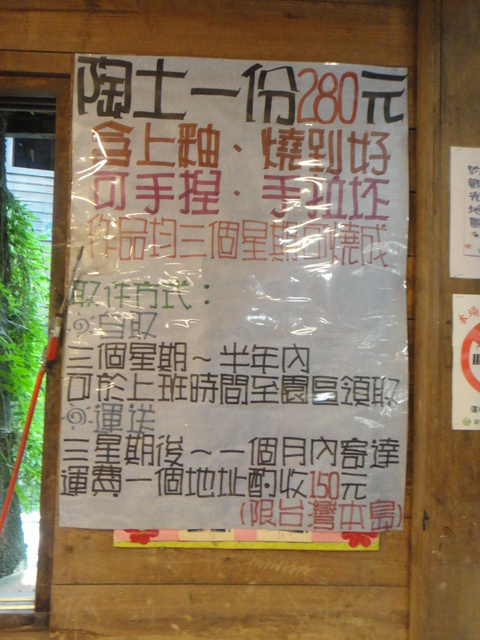 陶土一份280元
含上釉、燒到好
可手捏．手拉坯
作品均三個星期可燒成
取件方式：
自取
三個星期～半年內
可於上班時間至園區領取
運送
三星期後～一個月內寄達
運費一個地址酌收150元
(限台灣本島)